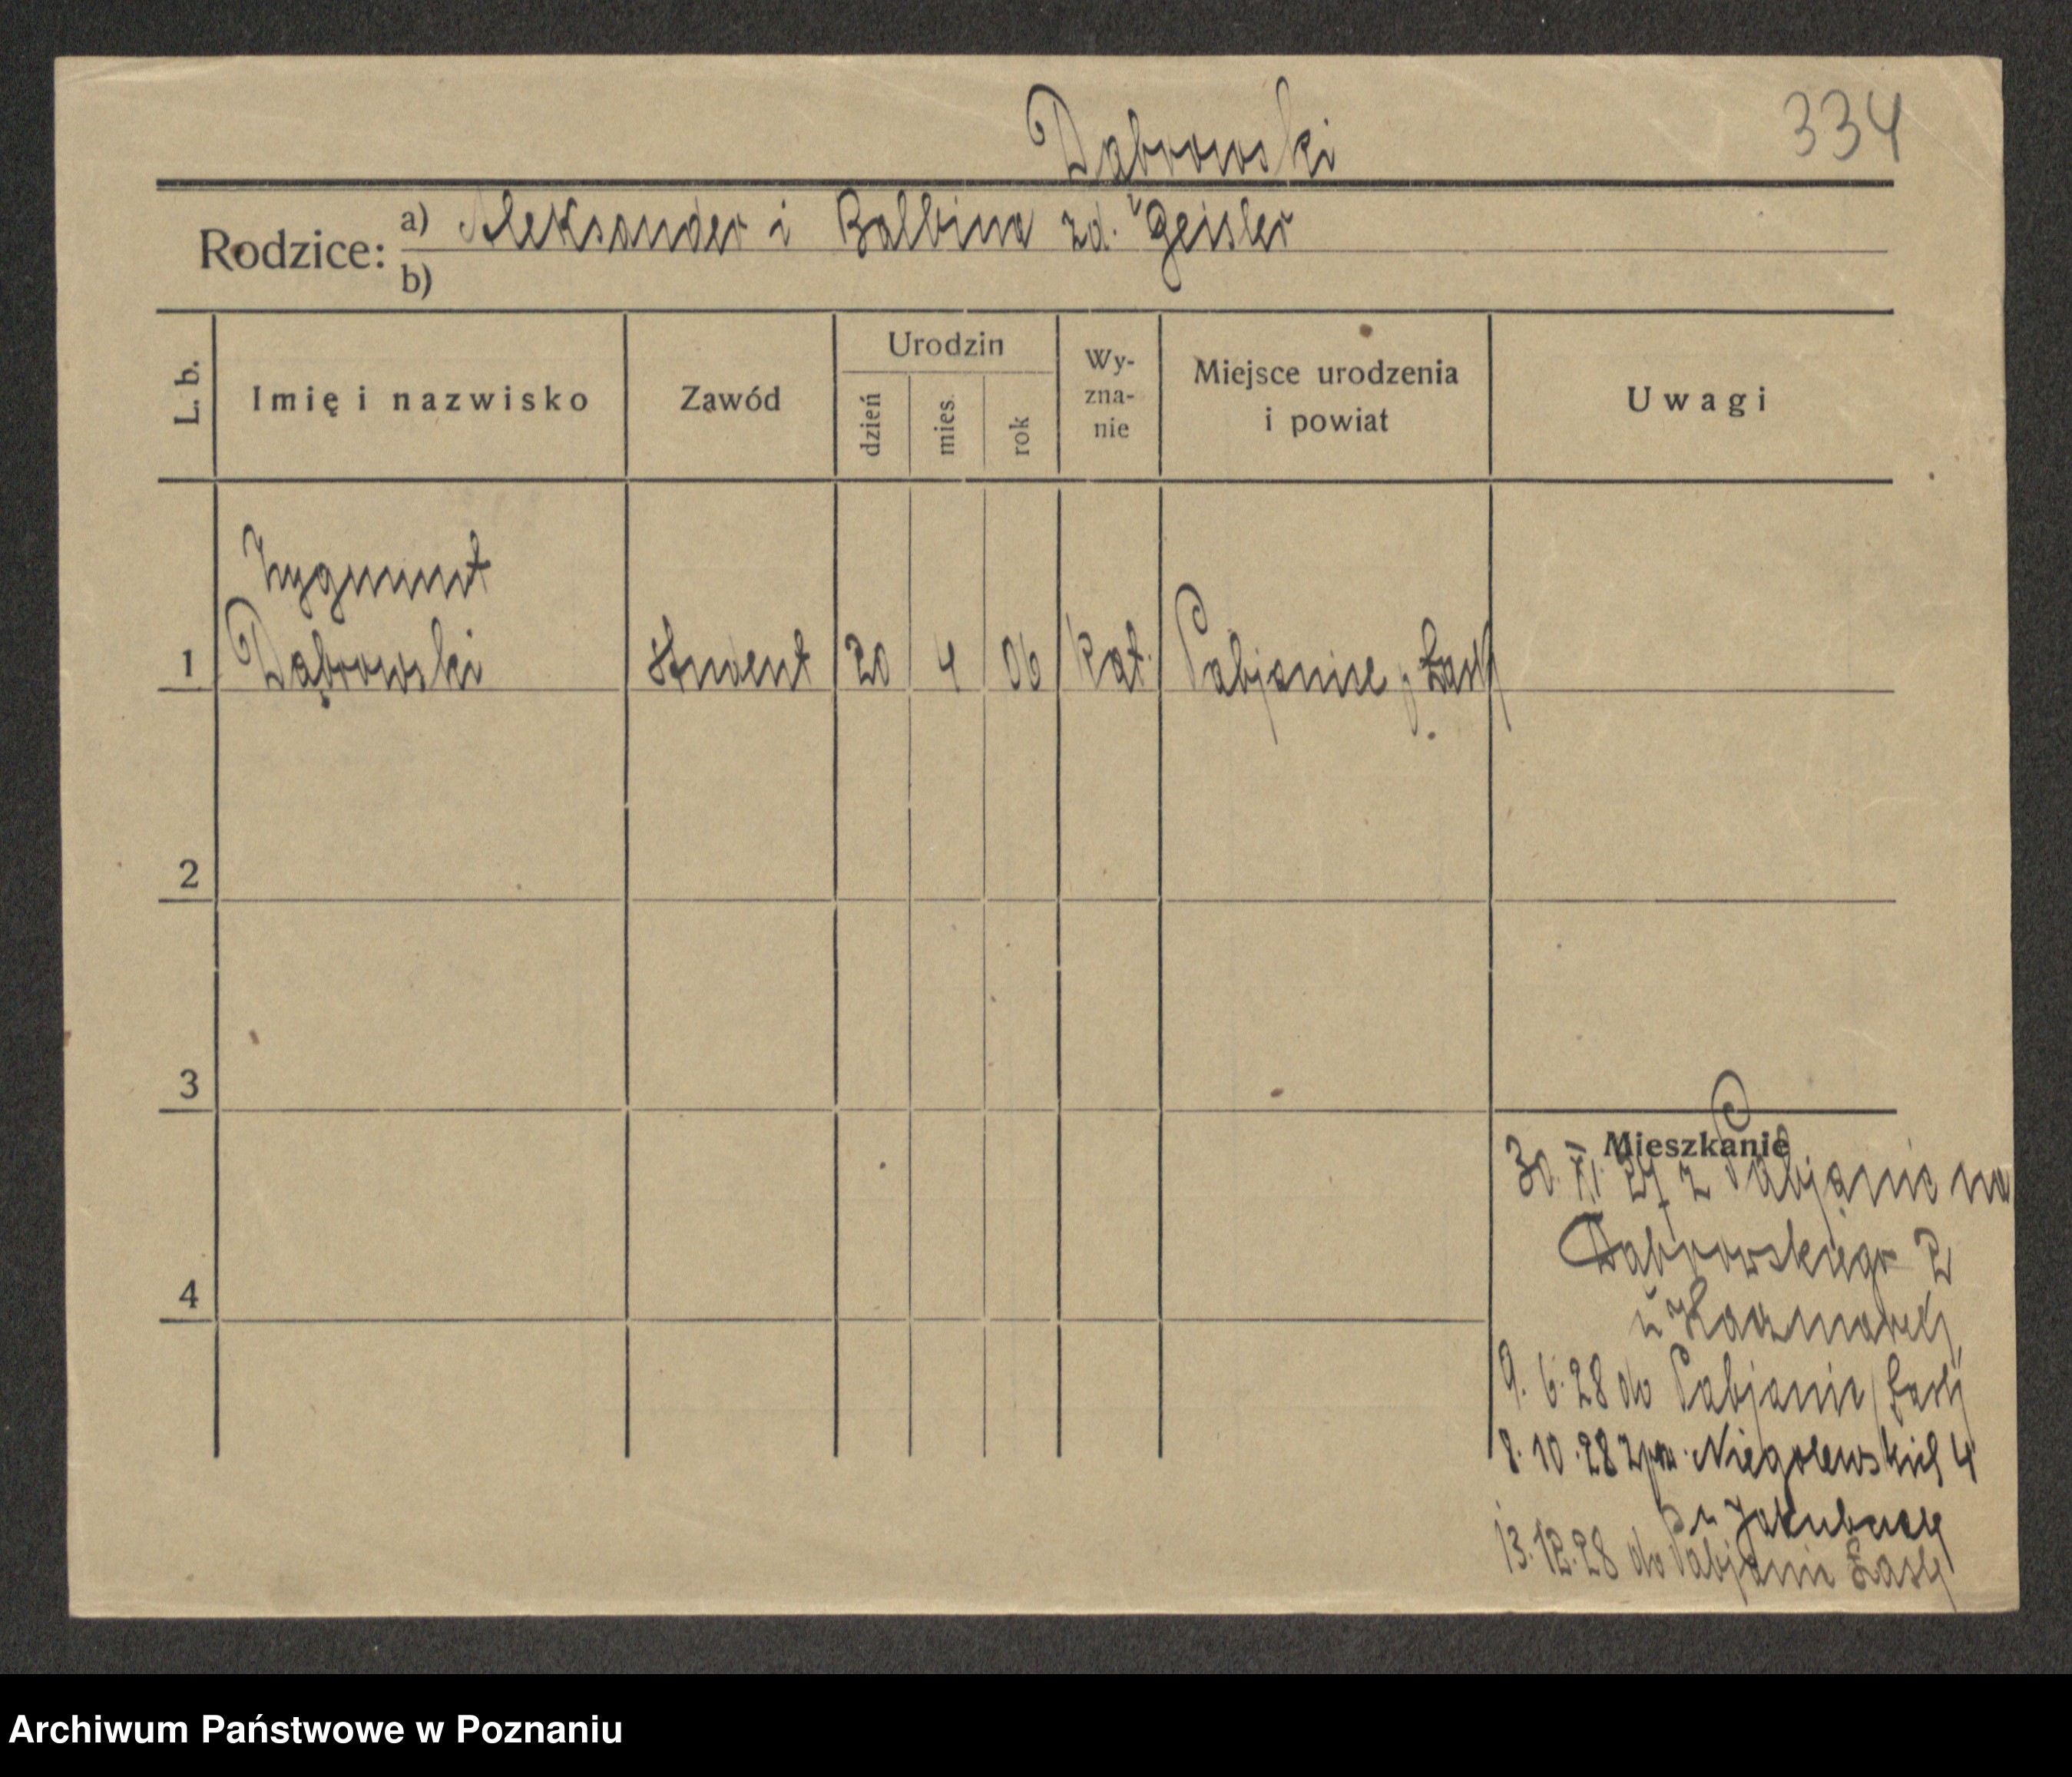 Dąbrowski
334
Rodzice: a) Aleksander i Balbina zd. Geisler
b)
L. b.
Imię i nazwisko
Zawód
Urodzin
dzień
mies.
rok
Wy-
zna-
nie
Miejsce urodzenia
i powiat
Uwagi
Zygmunt
1 Dąbrowski student 20 4 06 kat. Pabjanice, Łask
2
3
4
Mieszkanie
30. XI. 27 z Pabjanic na
Dąbrowskiego 2
u Kaczmarek
9. 6. 28 do Pabjanic / Łask
8. 10. 28 Niegolewskich 4
u
13. 12. 28 do Pabjanic Łask
Archiwum Państwowe w Poznaniu